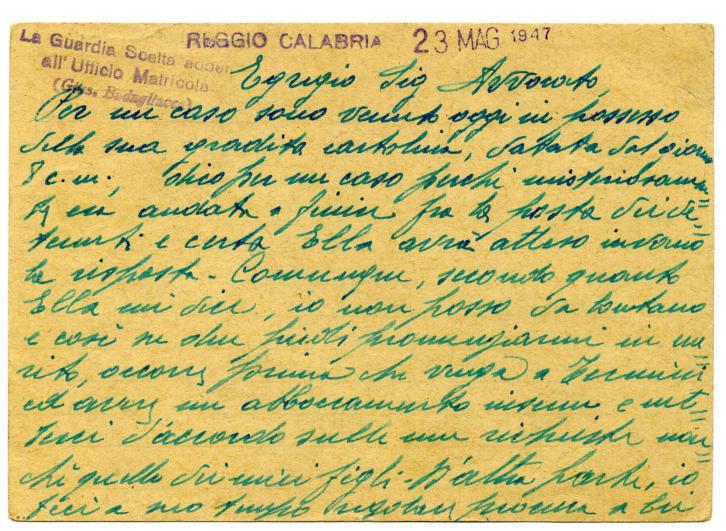 La Guardia Scelta addet
all'Ufficio Matricola
REGGIO CALABRIA 23 MAG 1947
Egregio Sig Avvocato,
Per un caso sono venuto oggi in possesso
della sua gradita cartolina, datata dal giorno
8 c.m., dico per un caso perchè misteriosamen=
te era andata a finire fra la posta dei de=
tenuti e certo Ella avrà atteso invano
la risposta - Comunque, secondo quanto
Ella mi dice, io non posso da lontano
e così su due piedi pronunziarmi in me=
rito, occorre prima che venga a Termini
ed avere un abboccamento insieme e met=
terci d'accordo sulle mie richieste non=
chè quelle dei miei figli - D'altra parte, io
feci a suo tempo regolare procura a Lei